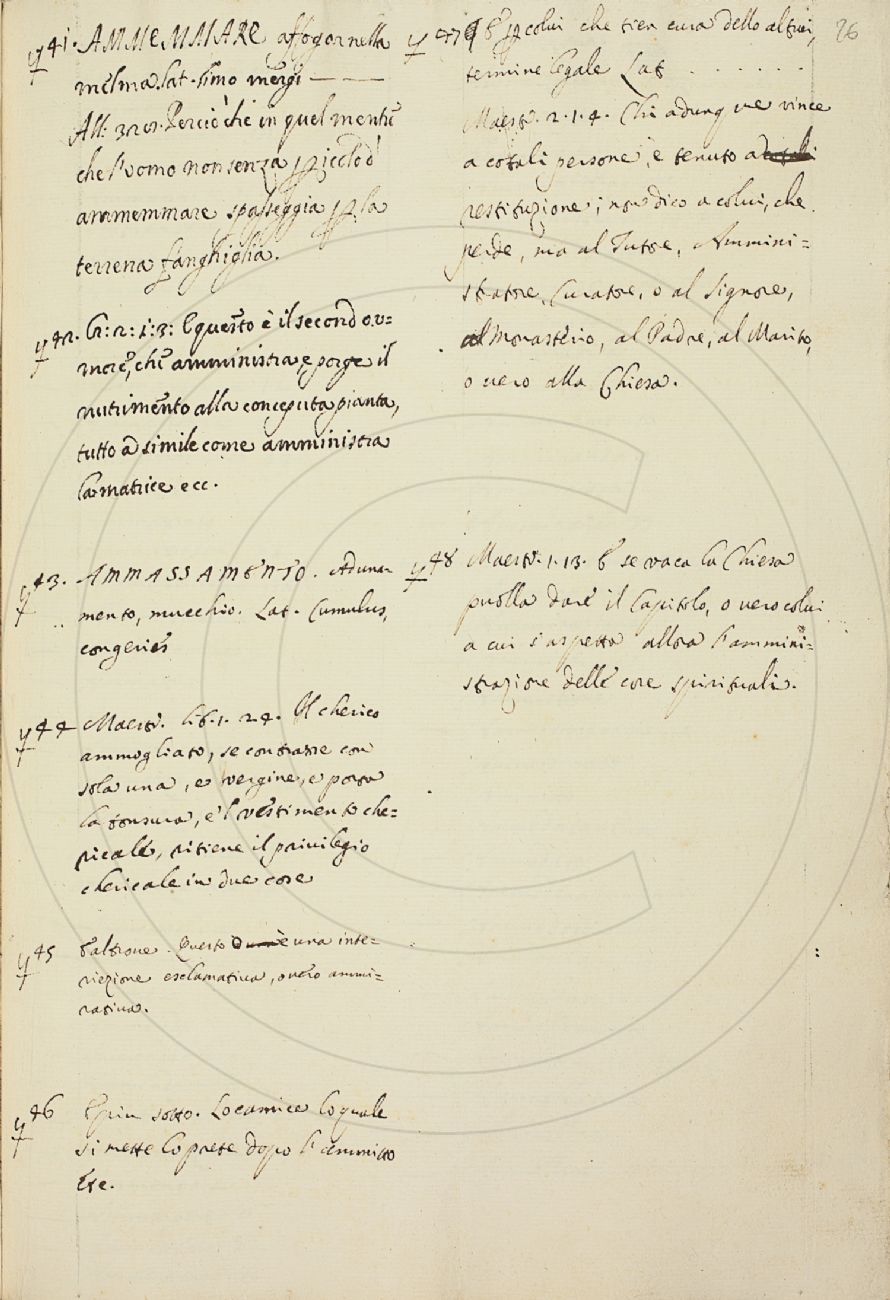 41. AMMEMMARE affogar nella
melma. Lat. limo mergi
All: 320. Percioche in quel mentre
che l'uomo non senza piccolo d
ammemmare spasseggia p la
terrena fanghiglia.
42. Cr: 2: 1:3: E questo è il second o u=
more, che amministra, e porge il
nutrimento alla conceputa pianta,
tutto a simile come amministra
la matrice ecc.
43. AMMASSAMENTO. Aduna-
mento, mucchio. Lat. Cumulus,
congeries
44 Maestr. lib. 1. 24. Il cherico
ammogliato, se contrasse con
sola una, e vergine, e porta
la tonsura, e 'l vestimento che=
ricale, ritiene il privilegio
chericale in due cose
45 E altrove. Questo è una inte=
riezione esclamativa, overo ammi=
rativa.
46 E piu sotto. Lo camice lo quale
si mette lo prete dopo l'ammitto
Etc.
47 E p colui che tien cura dello altrui,
termine legale Lat . . . . . .
Maestr. 2. 1. 4. Chi adunque vince
a cotali persone, e tenuto a
restituzione; non dico a colui, che
perde, ma al Tutore, Ammini=
stratore, Curatore, o al Signore,
al Monasterio, al Padre, al Marito,
o vero alla Chiesa.
48 Maestr. 1. 13. E se vaca la Chiesa
puolla dare il Capitolo, o vero colui
a cui s'aspetta allora l'ammini=
strazione delle cose spirituali.